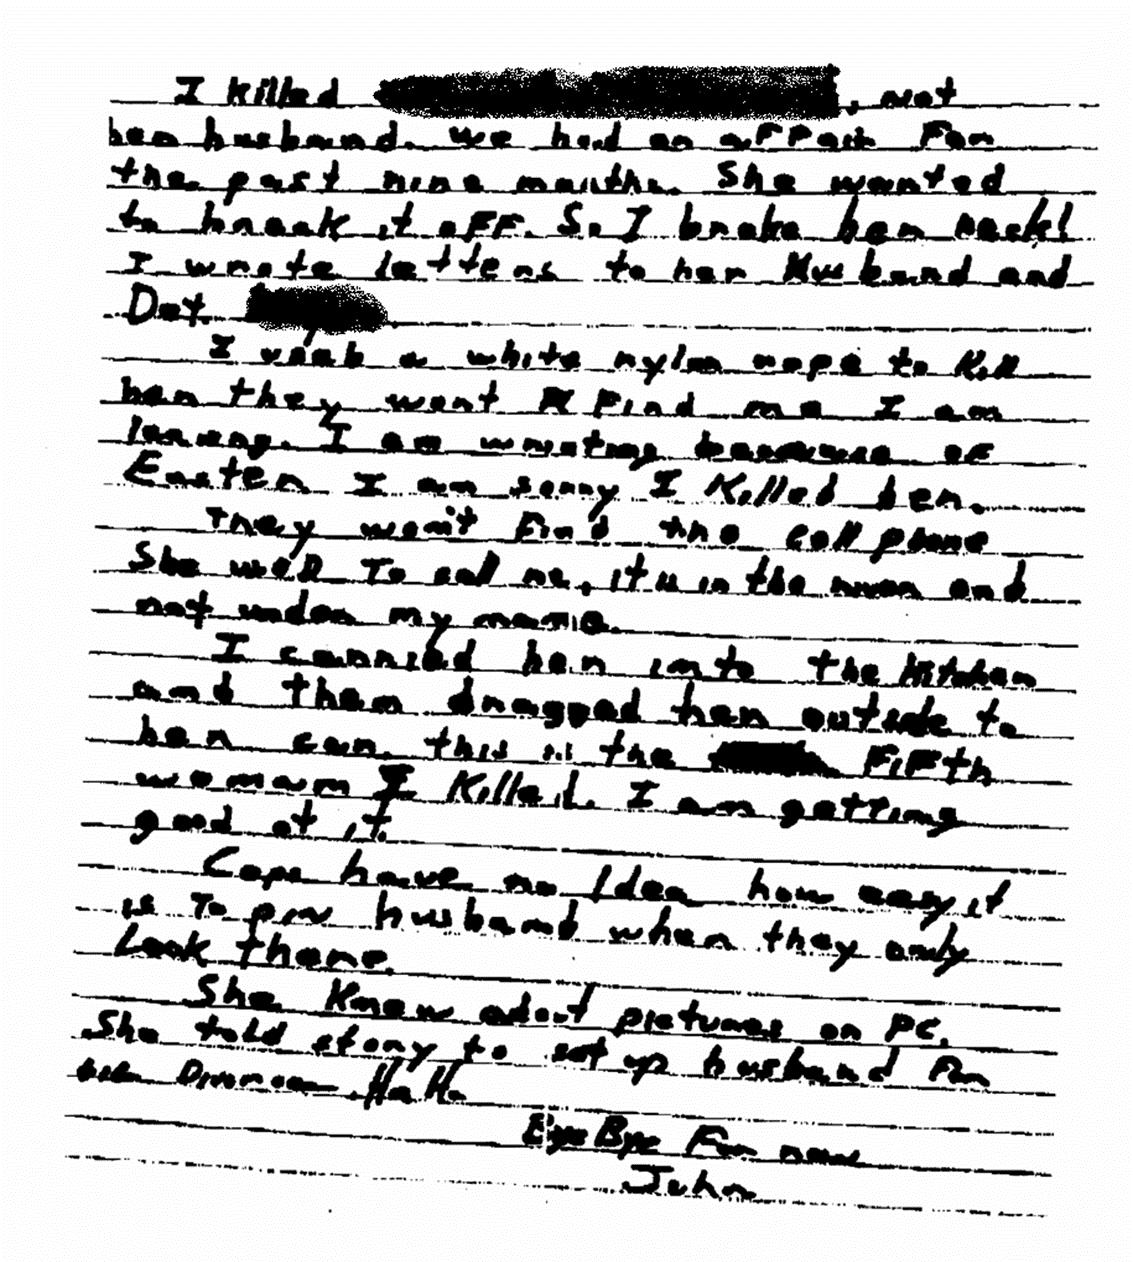 I killed , not
her husband. We had an affair For
the past nine months. She wanted
to break it oFF. So I broke her neck!
I wrote letters to her Husband and
Det.
I used a white nylon rope to Kill
her they wont Find me I am
leaving. I am writing because of
Easter I am sorry I Killed her.
They won't Find the cell phone
She used To call me, it is in the river and
not under my name.
I carried her into the Kitchen
and then dragged her outside to
her car. this is the FiFth
woman I Killed. I am getting
good at it.
Cops have no Idea how easy it
is To pin husband when they only
Look there.
She Knew about pictures on PC.
She told story to set up husband For
Divorce. Ha Ha
Bye Bye For now
John